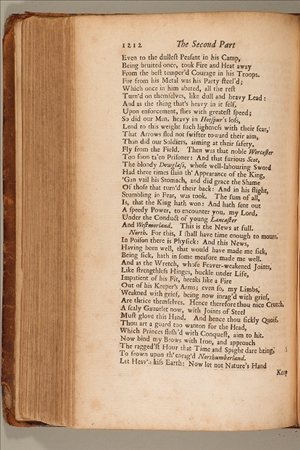 1212 The Second Part
Even to the dullest Peasant in his Camp,
Being bruited once, took Fire and Heat away
From the best temper'd Courage in his Troops.
For from his Metal was his Party steel'd;
Which once in him abated, all the rest
Turn'd on themselves, like dull and heavy Lead:
And as the thing that's heavy in it self,
Upon enforcement, flies with greatest speed;
So did our Men, heavy in Hotspur's loss,
Lend to this weight such lightness with their fear,
That Arrows fled not swifter toward their aim,
Than did our Soldiers, aiming at their safety,
Fly from the Field. Then was that noble Worcester
Too soon ta'en Prisoner: And that furious Scot,
The bloody Dowglass, whose well-labouring Sword
Had three times slain th' Appearance of the King,
'Gan vail his Stomach, and did grace the Shame
Of those that turn'd their back: And in his flight,
Stumbling in Fear, was took. The sum of all,
Is, that the King hath won: And hath sent out
A speedy Power, to encounter you, my Lord,
Under the Conduct of young Lancaster
And Westmorland. This is the News at full.
North. For this, I shall have time enough to mourn.
In Poison there is Physick: And this News,
Having been well, that would have made me sick,
Being sick, hath in some measure made me well.
And as the Wretch, whose Feaver-weakened Joints,
Like strengthless Hinges, buckle under Life,
Impatient of his Fit, breaks like a Fire
Out of his Keeper's Arms; even so, my Limbs,
Weakned with grief, being now inrag'd with grief,
Are thrice themselves. Hence therefore thou nice Crutch,
A scaly Gauntlet now, with Joints of Steel
Must glove this Hand. And hence thou sickly Quoif,
Thou art a guard too wanton for the Head,
Which Princes flesh'd with Conquest, aim to hit.
Now bind my Brows with Iron, and approach
The ragged'st Hour that Time and Spight dare bring,
To frown upon th' enrag'd Northumberland.
Let Heav'n kiss Earth: Now let not Nature's Hand